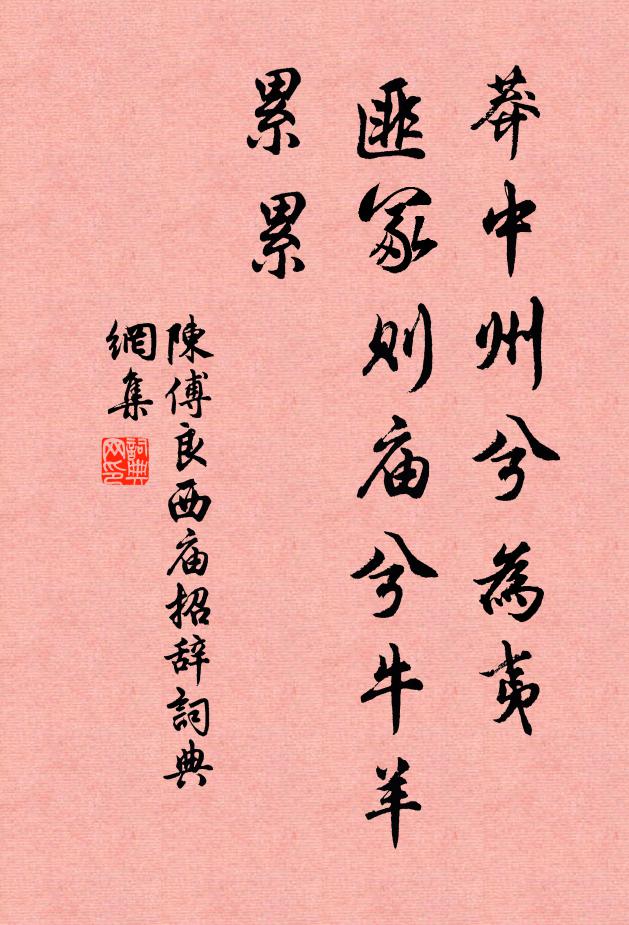 莽中州兮為夷
匪冢则庙兮牛羊
累累
陳傅良西庙招辞詞典
網集
詞典
网印